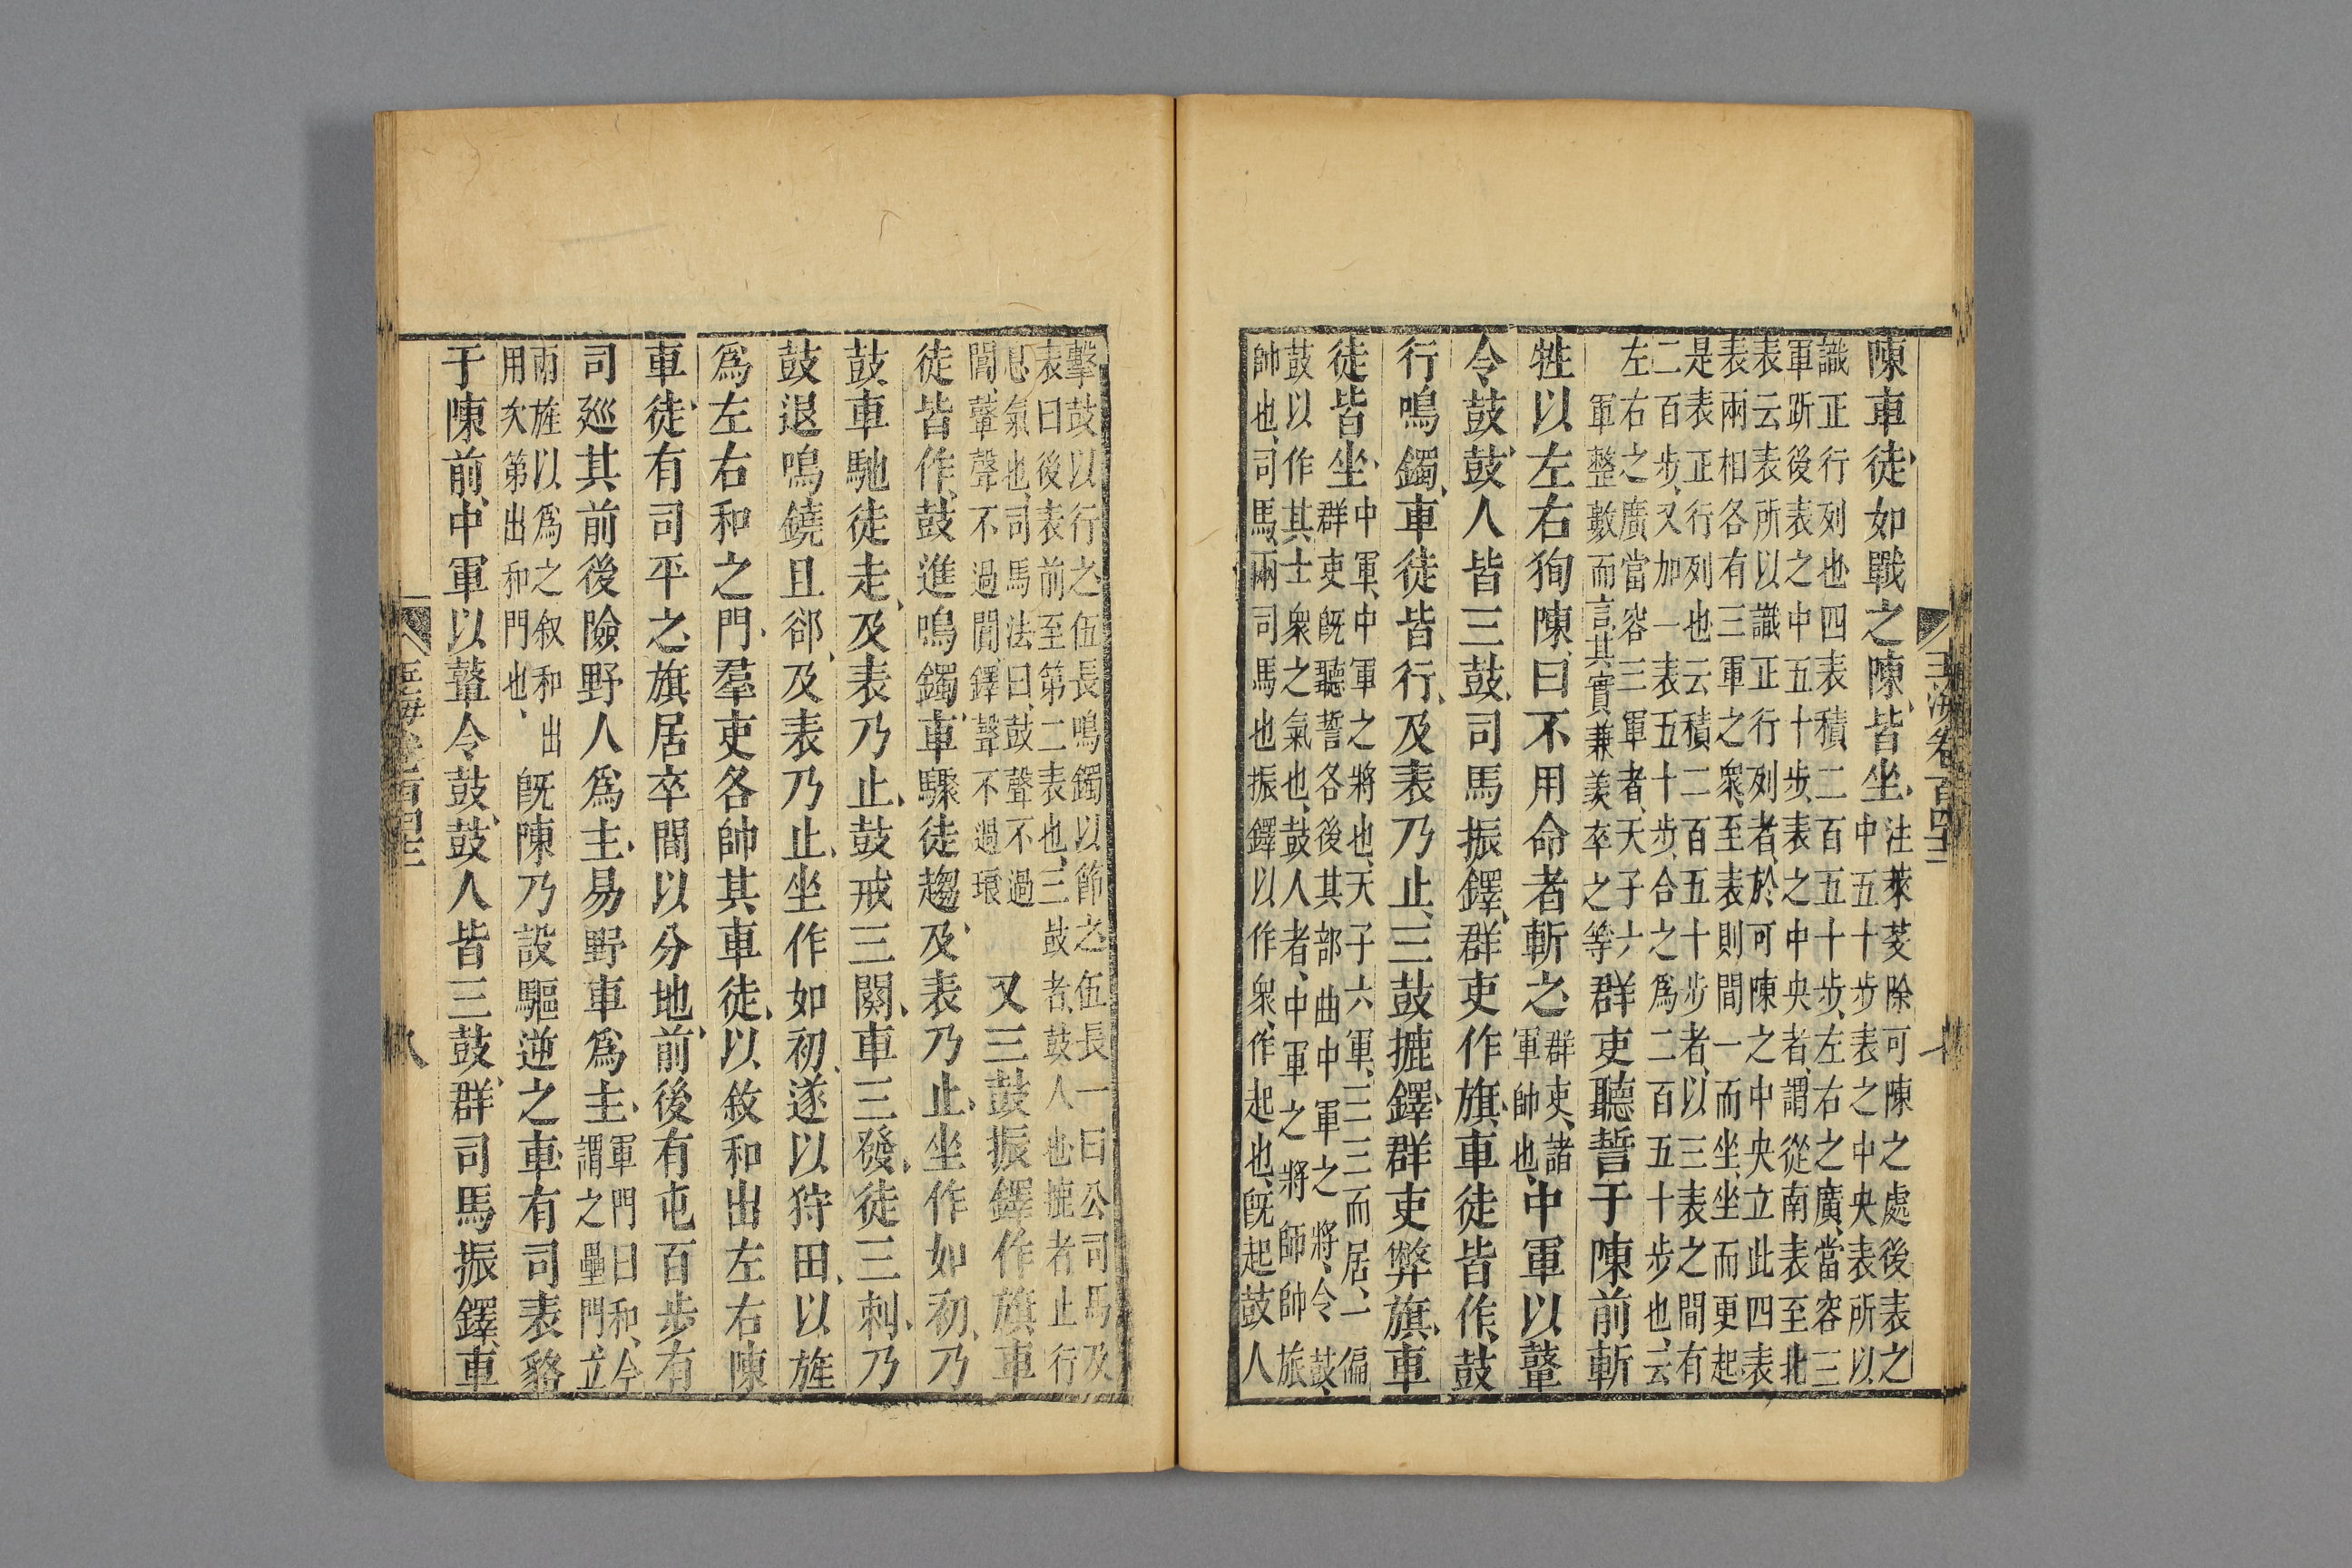 玉海卷百四十三　七
陳車徒如戰之陳皆坐
注萊芟除可陳之處後表之
中五十步表之中央表所以
識正行列也四表積二百五十步左右之廣當容三
軍䟫後表之中五十步表之中央者謂從南表至北
表云表所以識正行列者於可陳之中央立此四表
表兩相各有三軍之衆至表則間一而坐坐而更起
是表正行列也云積二百五十步者以三表之間有
二百步又加一表五十步合之爲二百五十步也云
左右之廣當容三軍者天子六
軍整數而言其實兼羨卒之等
群吏聽誓于陳前斬
牲以左右狥陳曰不用命者斬之
群吏諸
軍帥也
中軍以鼙
令鼓鼓人皆三鼓司馬振鐸群吏作旗車徒皆作鼓
行鳴鐲車徒皆行及表乃止三鼓摝鐸群吏弊旗車
徒皆坐
中軍中軍之將也天子六軍三三而居一偏
群吏旣聽誓各後其部曲中軍之將令鼓
鼓以作其士衆之氣也鼓人者中軍之將師帥旅
帥也司馬兩司馬也振鐸以作衆作起也旣起鼓人
擊鼓以行之伍長鳴鐲以節之伍長一曰公司馬及
表曰後表前至第二表也三鼓者鼓人也摝者止行
息氣也司馬法曰鼓聲不過
閶鼙聲不過闒鐸聲不過琅
又三鼓振鐸作旗車
徒皆作鼓進鳴鐲車驟徒趨及表乃止坐作如初乃
鼓車馳徒走及表乃止鼓戒三闋車三發徒三刺乃
鼓退鳴鐃且郤及表乃止坐作如初遂以狩田以旌
爲左右和之門羣吏各帥其車徒以敘和出左右陳
車徒有司平之旗居卒間以分地前後有屯百步有
司巡其前後險野人爲主易野車爲主
軍門曰和今
謂之壘門立
兩旌以爲之叙和出
用次第出和門也
旣陳乃設驅逆之車有司表貉
于陳前中軍以鼙令鼓鼓人皆三鼓群司馬振鐸車
玉海卷百四十三　八